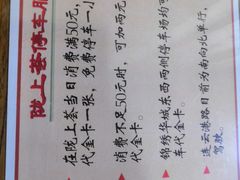 陇上荟停车服
在陇上荟当日消费满50元,
代金卡一张,免费停车一小
消费不足50元时,可加两元
代金卡。
锦绣华城东西两侧停车场均可
车代金卡。
连云港路目前为南向北单行,
驾驶。